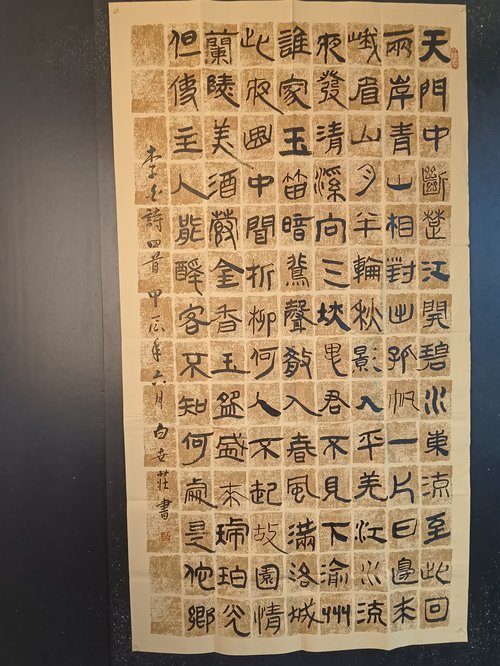 天門中斷楚江開碧水東流至此回
兩岸青山相對出孤帆一片日邊來
峨眉山月半輪秋影入平羌江水流
夜發清溪向三峽思君不見下渝州
誰家玉笛暗飛聲散入春風滿洛城
此夜曲中聞折柳何人不起故園情
蘭陵美酒鬱金香玉盌盛來琥珀光
但使主人能醉客不知何處是他鄉
李白詩四首甲辰年六月白莊書